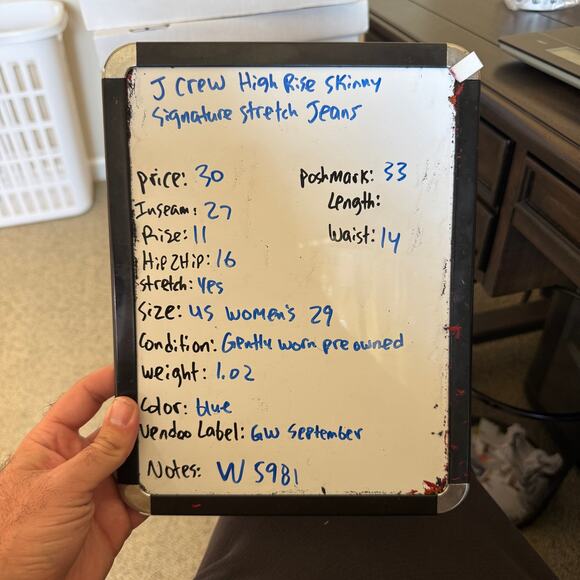 J Crew High Rise Skinny
Signature Stretch Jeans
Price: 30
Poshmark: 33
Inseam: 27
Length:
Rise: 11
Waist: 14
Hip2Hip: 16
Stretch: Yes
Size: US Women's 29
Condition: Gently worn pre owned
Weight: 1.02
Color: blue
Vendoo Label: GW September
Notes: W5981